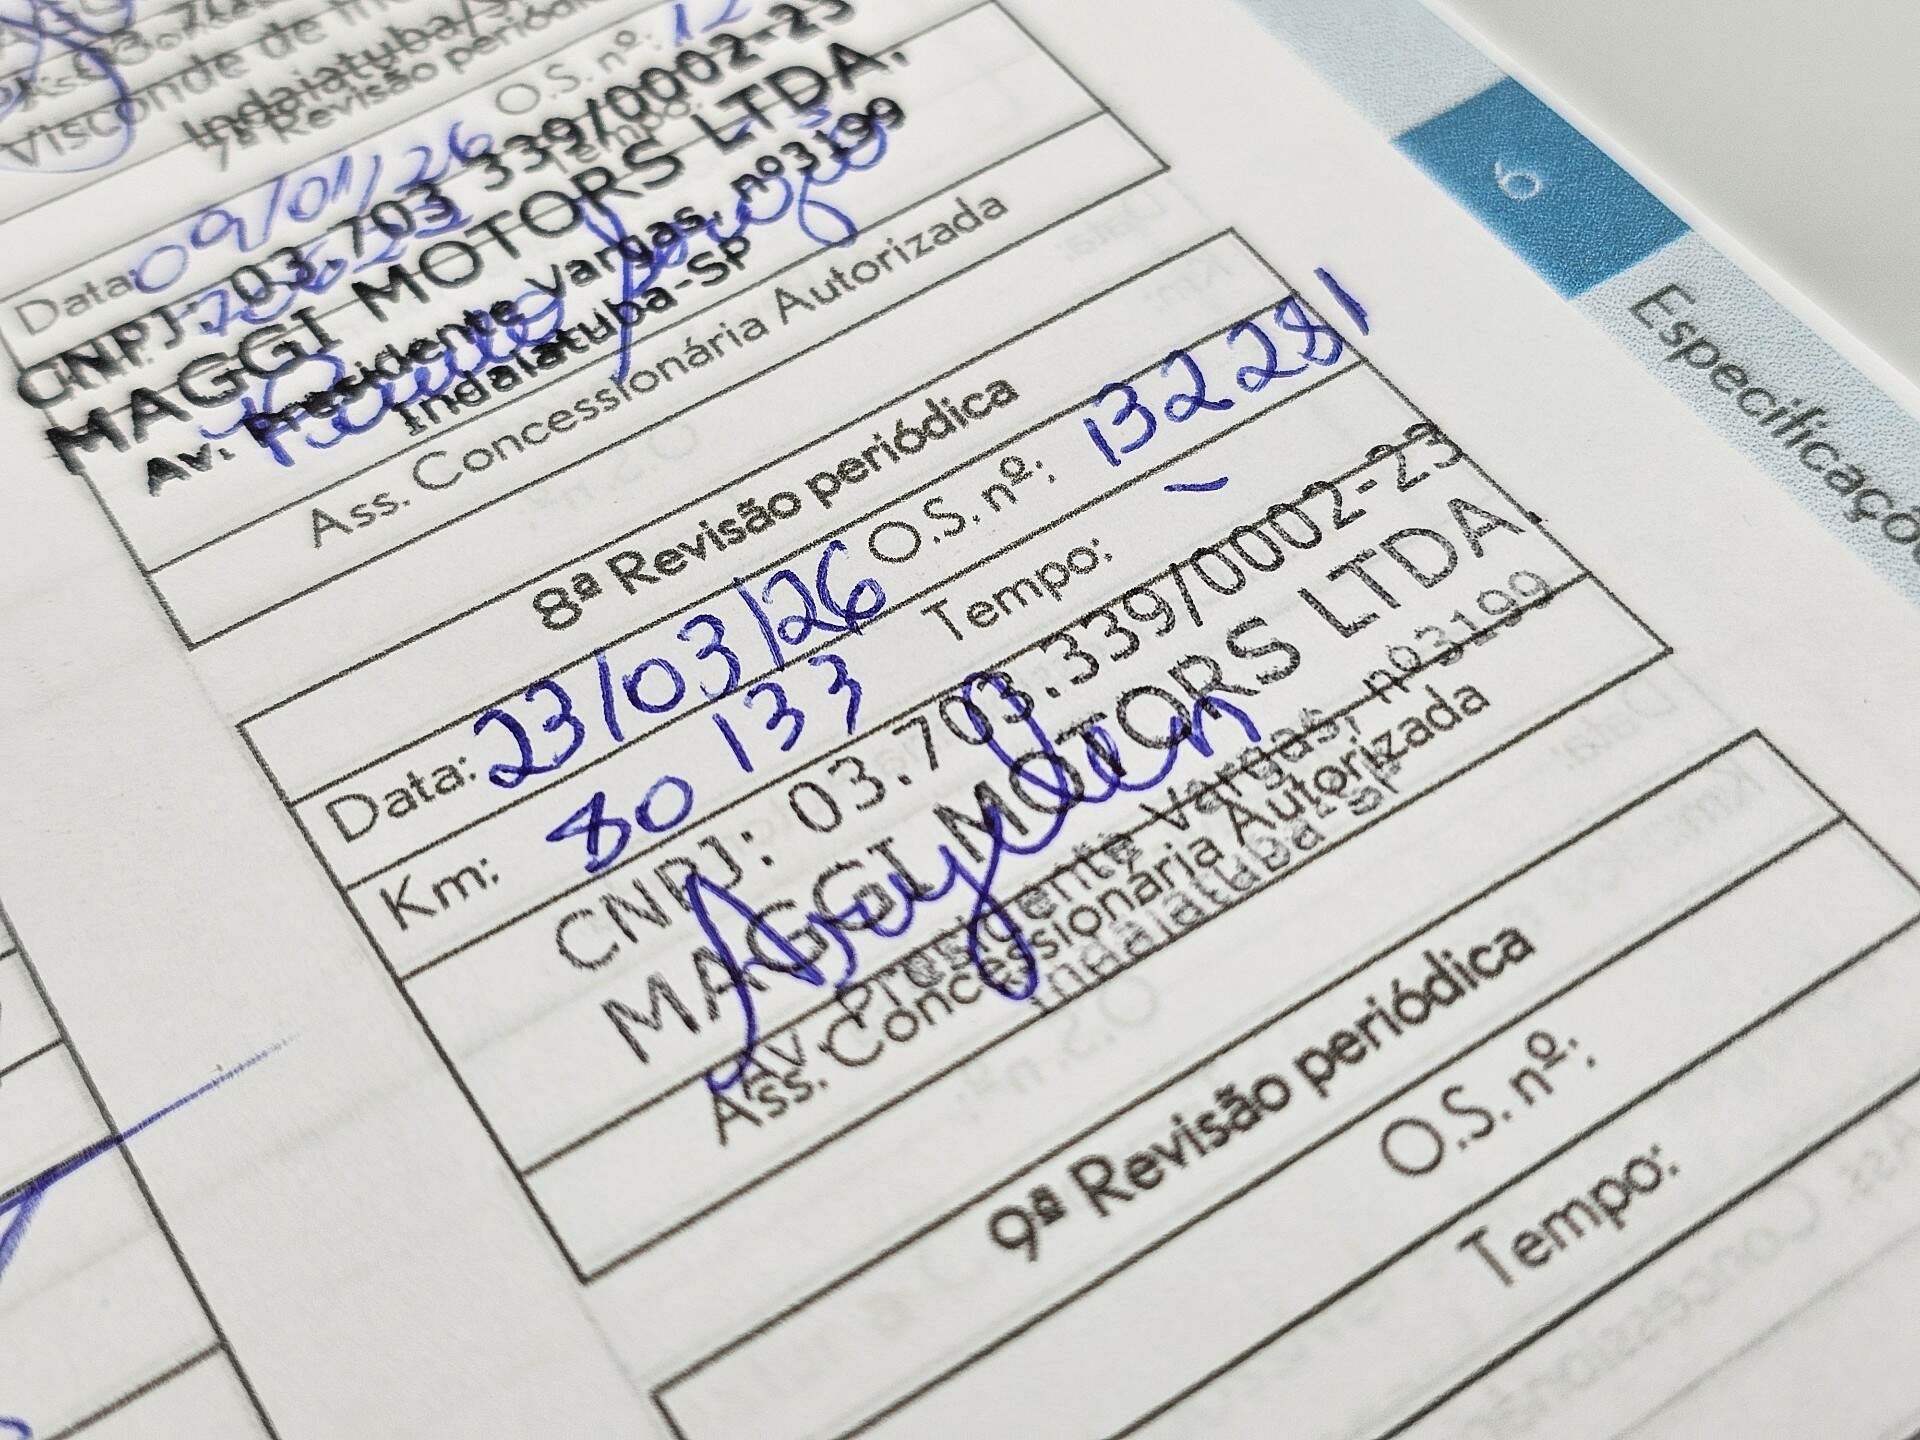 Visconde de
Indaiatuba/S
7ª Revisão periódica
O.S. nº: 12
Data: 09/01/26
Tempo:
CNPJ: 03.703 339/0002-23
MAGGI MOTORS LTDA.
Av. Presidente Vargas, nº3199
Indaiatuba-SP
Ass. Concessionária Autorizada
8ª Revisão periódica
Data: 23/03/26 O.S. nº: 132281
Km: 80 133 Tempo: -
CNPJ: 03.703.339/0002-23
MAGGI MOTORS LTDA.
Av. Presidente Vargas, nº3199
Indaiatuba-SP
Ass. Concessionária Autorizada
9ª Revisão periódica
O.S. nº:
Tempo:
6
Especificaçõ